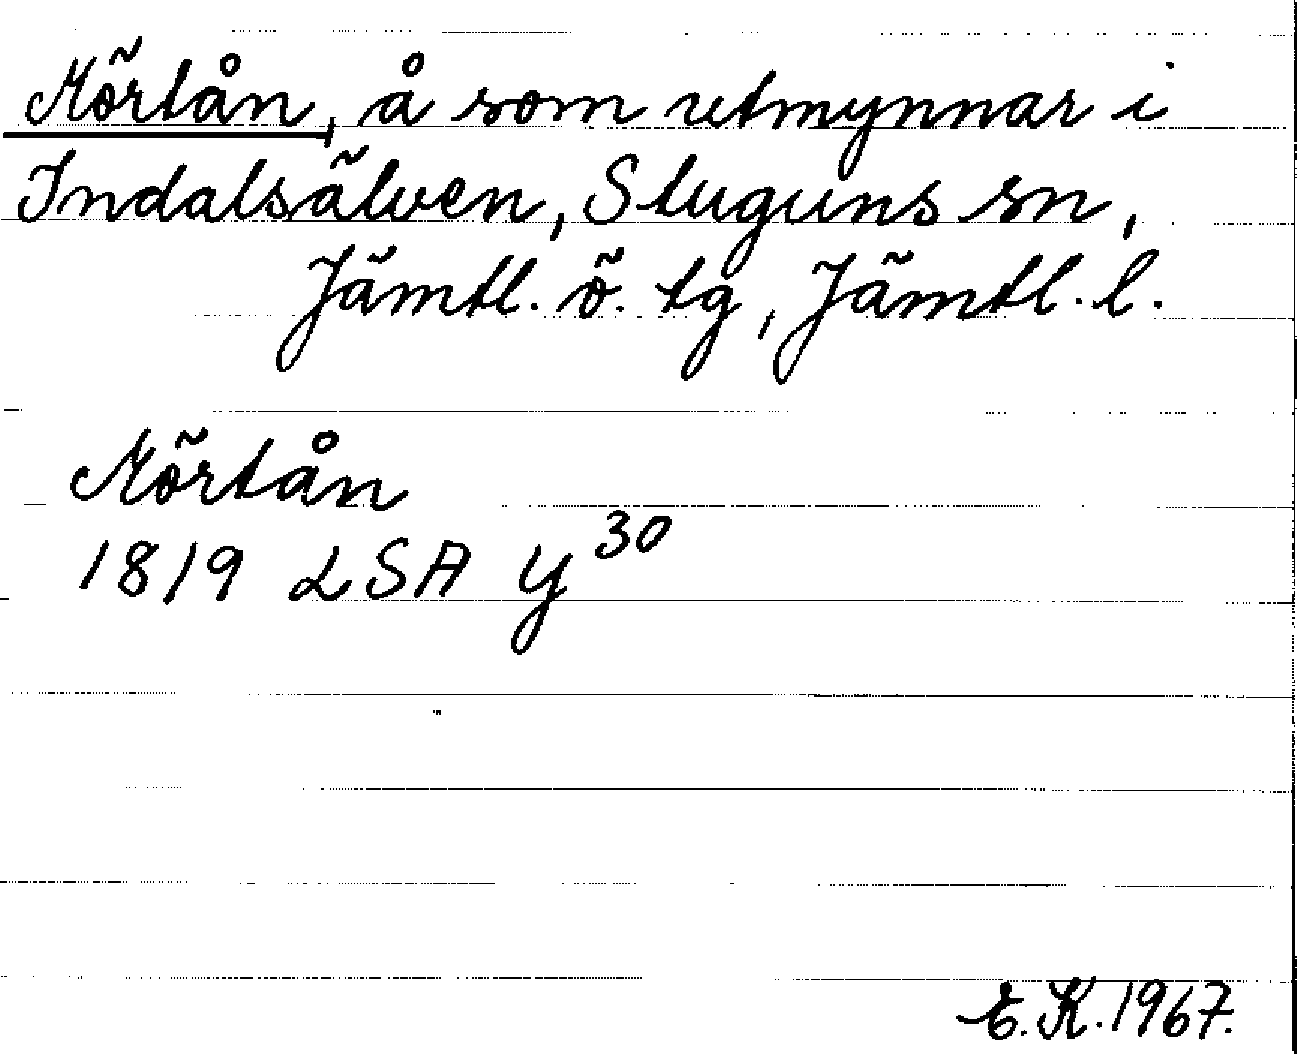 Mörtån, å som utmynnar i
Indalsälven, Stuguns sn,
Jämtl. ö. tg, Jämtl. l.
Mörtån
1819 LSA Y³⁰
E. K. 1967.